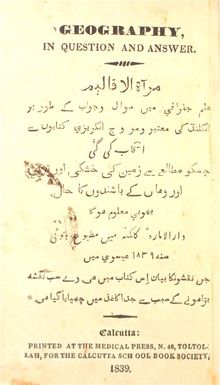 GEOGRAPHY,
IN QUESTION AND ANSWER.
مرآة الاقاليم
علم جغرافي مين سوال وجواب كے طور پر
انگلنڈ كي معتبر ومروج انگريزي كتابون سے
انتخاب كي گئي
جسكے مطالعے سے زمين كي خشكي اور تري
اور وهان كے باشندون كا حال
بخوبي معلوم هوگا
دار الامارة كلكته مين مطبوع هوئي
سنه ١٨٣٩ عيسوي مين
جن نقشونكا بيان اس كتاب مين هي وے سب نقشه
بڑا هونے كے سبب سے جدا كاغذ مين چهاپا گيا هي *
Calcutta:
PRINTED AT THE MEDICAL PRESS, N. 46, TOLTOL-
LAH, FOR THE CALCUTTA SCHOOL BOOK SOCIETY;
1839.